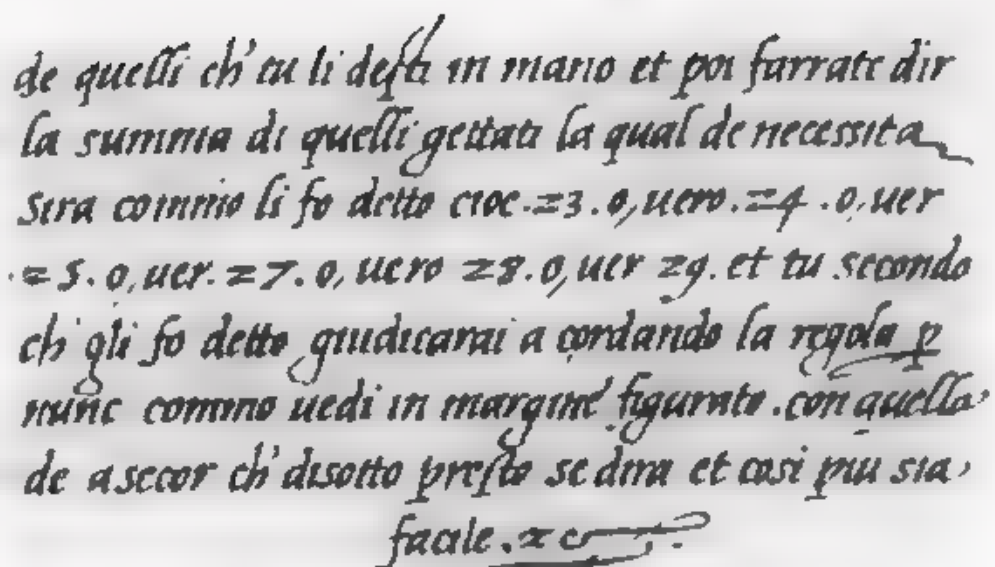 de quelli ch' tu li desti in mano et poi farrate dir
la summa di quelli gettati la qual de necessita
sira commo li fo detto cioe. 23. o, uero. 24. o, uer
.25. o, uer. 27. o, uero 28. o, uer 29. et tu secondo
ch' gli fo detto giudicarai a cordando la regola p
nunc commo uedi in margine figurato. con quella
de a secor ch' disotto presto se dira et cosi piu sia
facile. xc